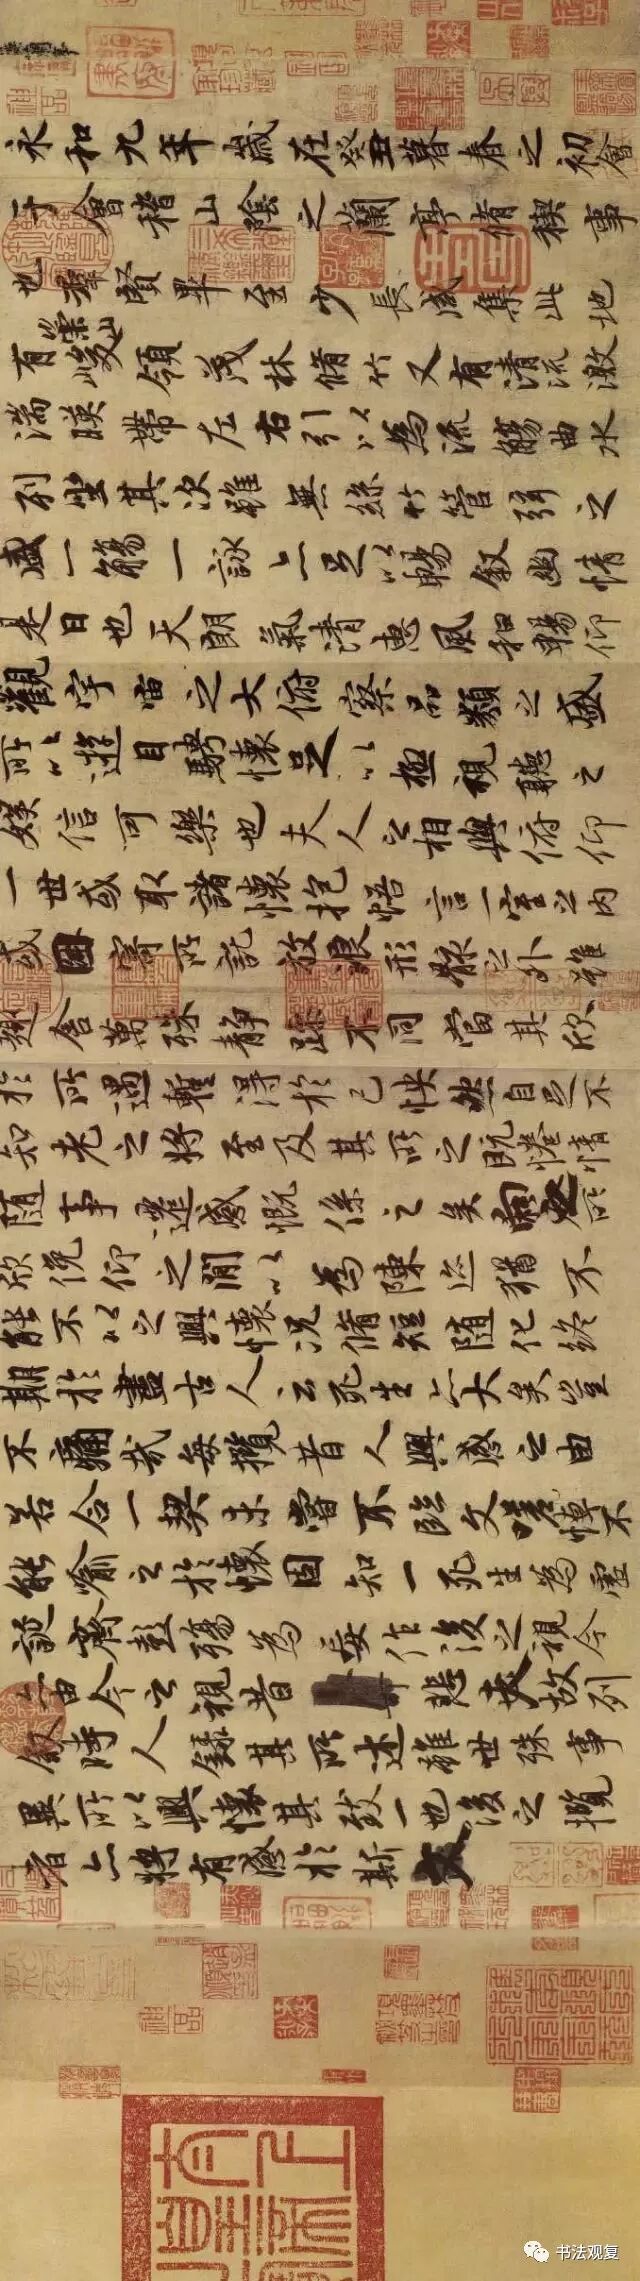 永和九年歲在癸丑暮春之初會
于會稽山陰之蘭亭脩稧事
也羣賢畢至少長咸集此地
有崇山峻領茂林脩竹又有清流激
湍暎帶左右引以為流觴曲水
列坐其次雖無絲竹管弦之
盛一觴一詠亦足以暢叙幽情
是日也天朗氣清惠風和暢仰
觀宇宙之大俯察品類之盛
所以遊目騁懷足以極視聽之
娛信可樂也夫人之相與俯仰
一世或取諸懷抱悟言一室之内
或因寄所託放浪形骸之外雖
趣舍萬殊静躁不同當其欣
於所遇暫得於己怏然自足不
知老之將至及其所之既惓情
随事遷感慨係之矣向之所
欣俛仰之閒以為陳迹猶不
能不以之興懷況脩短随化終
期於盡古人云死生亦大矣豈
不痛哉每攬昔人興感之由
若合一契未嘗不臨文嗟悼不
能喻之於懷固知一死生為虛
誕齊彭殤為妄作後之視今
亦由今之視昔悲夫故列
叙時人録其所述雖世殊事
異所以興懷其致一也後之攬
者亦將有感於斯文
书法观复